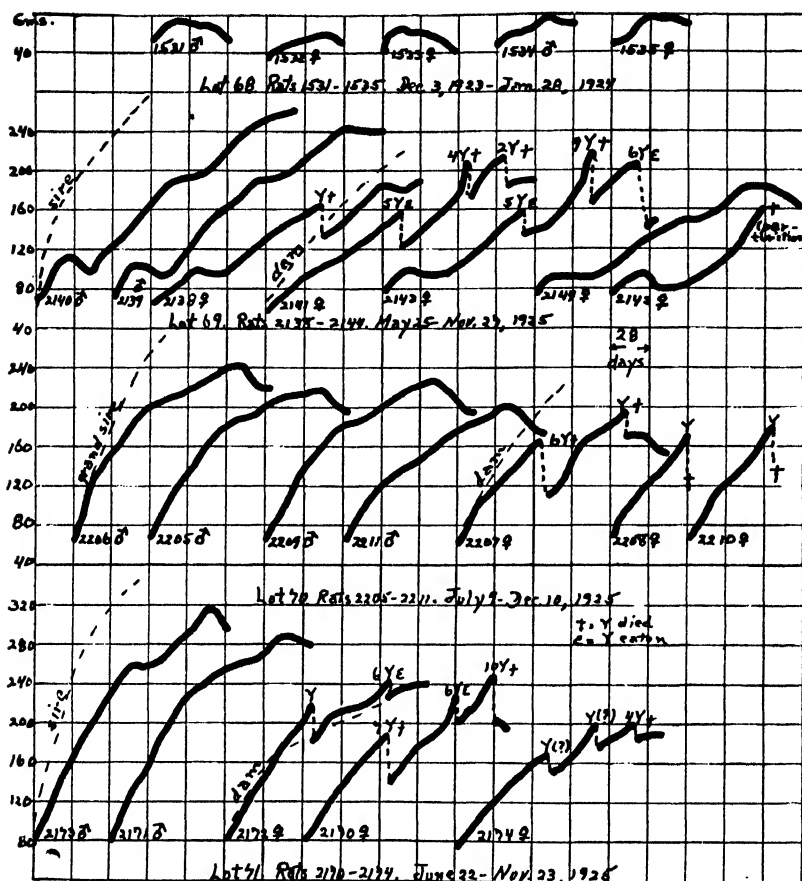 Gms.
40
1531♂ 1532♀ 1533♀ 1534♂ 1535♀
Lot 68 Rats 1531-1535 Dec 3, 1923 - Jan 28, 1924
240
200
160
120
80
40
sire
dam
Y†
5YE
4Y†
2Y†
5YE
Y†
6YE
†
(parturition
2140♂ 2139♂ 2138♀ 2141♀ 2143♀ 2144♀ 2142♀
Lot 69. Rats 2138-2144. May 25 - Nov. 27, 1925
28
days
240
200
160
120
80
40
grand sire
dam
6Y†
Y†
Y
†
Y
†
2206♂ 2205♂ 2209♂ 2211♂ 2207♀ 2208♀ 2210♀
Lot 70 Rats 2205-2211. July 9 - Dec. 10, 1925
†= Y died
E= Y eaten
320
280
240
200
160
120
80
sire
dam
Y
6YE
Y†
6YE
10Y†
Y(?)
Y(?)
4Y†
2173♂ 2171♂ 2172♀ 2170♀ 2174♀
Lot 71. Rats 2170-2174. June 22 - Nov. 23, 1925